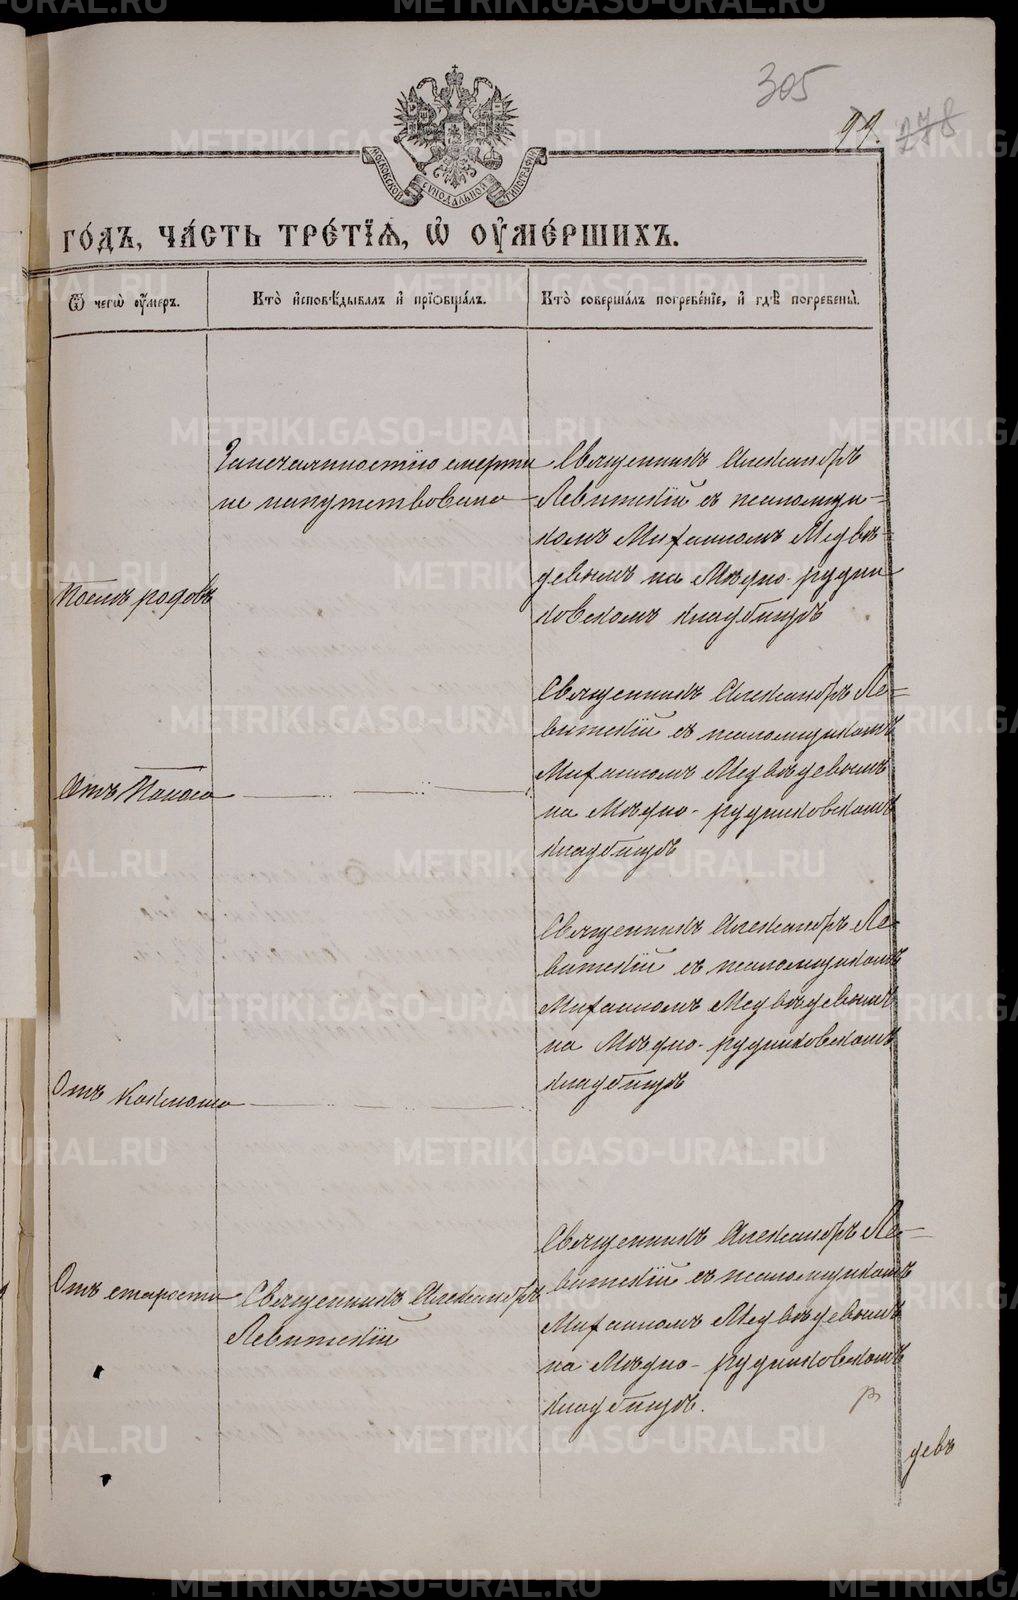 305
99. 278
МОСКОВСКОЙ СѴНОДАЛЬНОЙ ТИПОГРАФІИ
ГО́ДЪ, ЧА́СТЬ ТРЕ́ТІѦ, Ѡ҆ ОУ҆МЕ́РШИХЪ.
Ѿ чегѡ̀ оу҆́меръ.
Кто̀ и҆сповѣ́дывалъ и҆ прїѡбща́лъ.
Кто̀ соверша́лъ погребе́нїе, и҆ гдѣ̀ погребены̀.
После родовъ
За нечаянностію смерти
не напутствована
Священникъ Александръ
Левитскій съ псаломщи=
комъ Михаиломъ Медвѣ=
девымъ на Мѣдно-рудни
ковскомъ кладбищѣ
Отъ Поноса
Священникъ Александръ Ле=
витскій съ псаломщикомъ
Михаиломъ Медвѣдевымъ
на Мѣдно-рудниковскомъ
кладбищѣ
Отъ Коклюша
Священникъ Александръ Ле=
витскій съ псаломщикомъ
Михаиломъ Медвѣдевымъ
на Мѣдно-рудниковскомъ
кладбищѣ
Отъ старости
Священникъ Александръ
Левитскій
Священникъ Александръ Ле=
витскій съ псаломщикомъ
Михаиломъ Медвѣдевымъ
на Мѣдно-рудниковскомъ
кладбищѣ.
девъ
METRIKI.GASO-URAL.RU